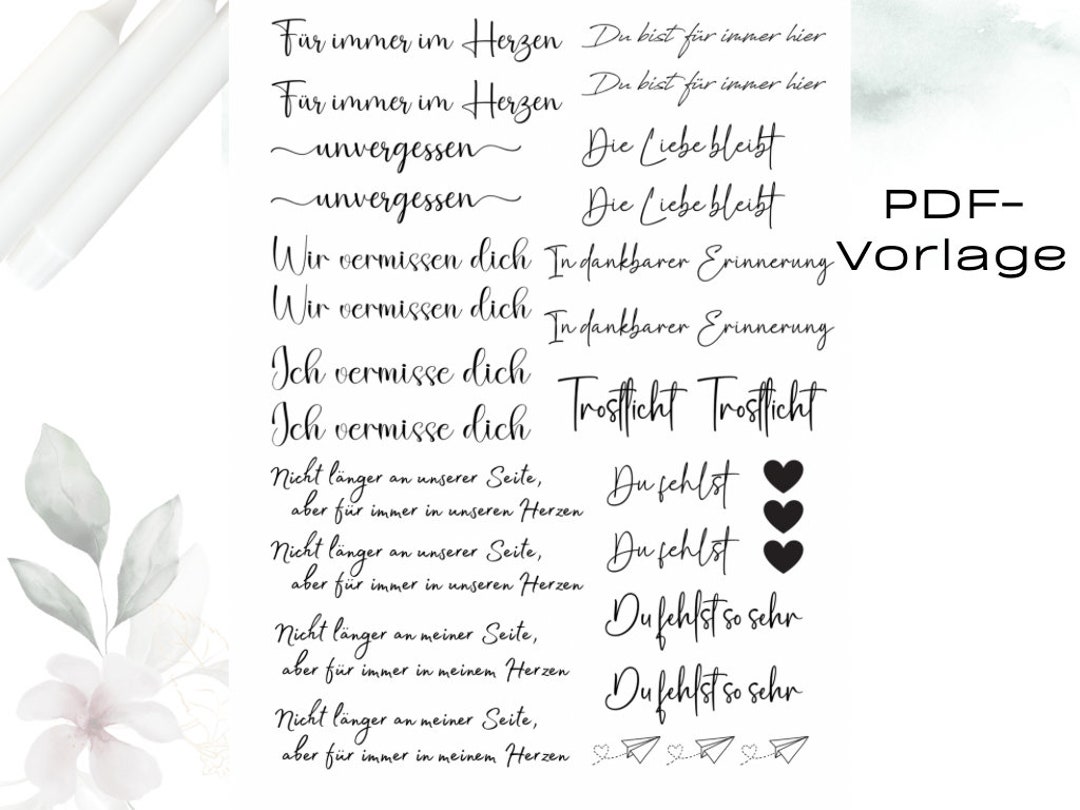 Für immer im Herzen
Für immer im Herzen
unvergessen
unvergessen
Wir vermissen dich
Wir vermissen dich
Ich vermisse dich
Ich vermisse dich
Nicht länger an unserer Seite,
aber für immer in unseren Herzen
Nicht länger an unserer Seite,
aber für immer in unseren Herzen
Nicht länger an meiner Seite,
aber für immer in meinem Herzen
Nicht länger an meiner Seite,
aber für immer in meinem Herzen
Du bist für immer hier
Du bist für immer hier
Die Liebe bleibt
Die Liebe bleibt
In dankbarer Erinnerung
In dankbarer Erinnerung
Trostlicht Trostlicht
Du fehlst
Du fehlst
Du fehlst so sehr
Du fehlst so sehr
PDF-
Vorlage